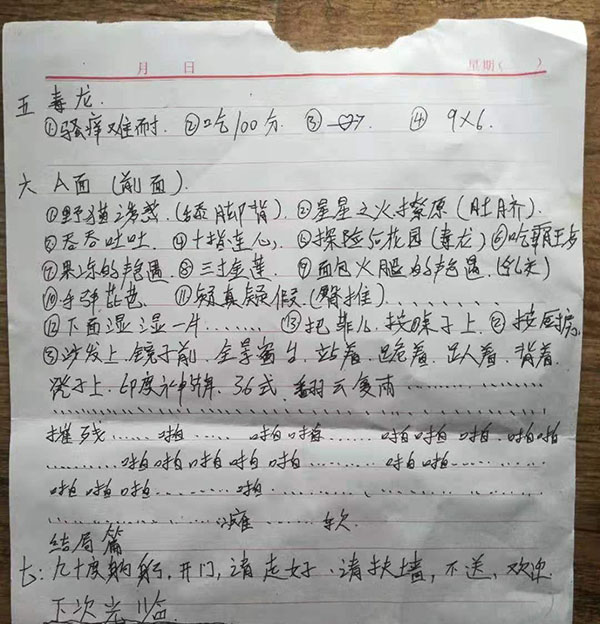 月 日 星期( )
五 毒龙.
①骚痒难耐. ②吃100分. ③ ④ 9×6.
六 A面 (前面).
①野猫诱惑.(舔脚背). ②星星之火,撩原(肚脐).
③吞吞吐吐. ④十指连心, ⑤探险后花园(毒龙) ⑥吃霸王
⑦果冻的艳遇. ⑧三寸金莲. ⑨面包火腿的艳遇.(乳夹)
⑩手弹芭芭. ⑪疑真疑假(臀推)、、、、、、
⑫下面湿湿一片....... ⑬把靠儿按桌子上. ②按厨房,
③沙发上.镜子前. 站着.跪着. 背着.
凳子上.印度神. 36式.翻云复雨
摧残......啪.....啪啪.......啪啪啪.啪啪
.......啪啪啪啪啪.......啪啪
啪啪啪.......啪
...........瘫.......软.
结局篇
七:九十度鞠躬.开门,请走好.请扶墙,不送,欢迎
下次光临